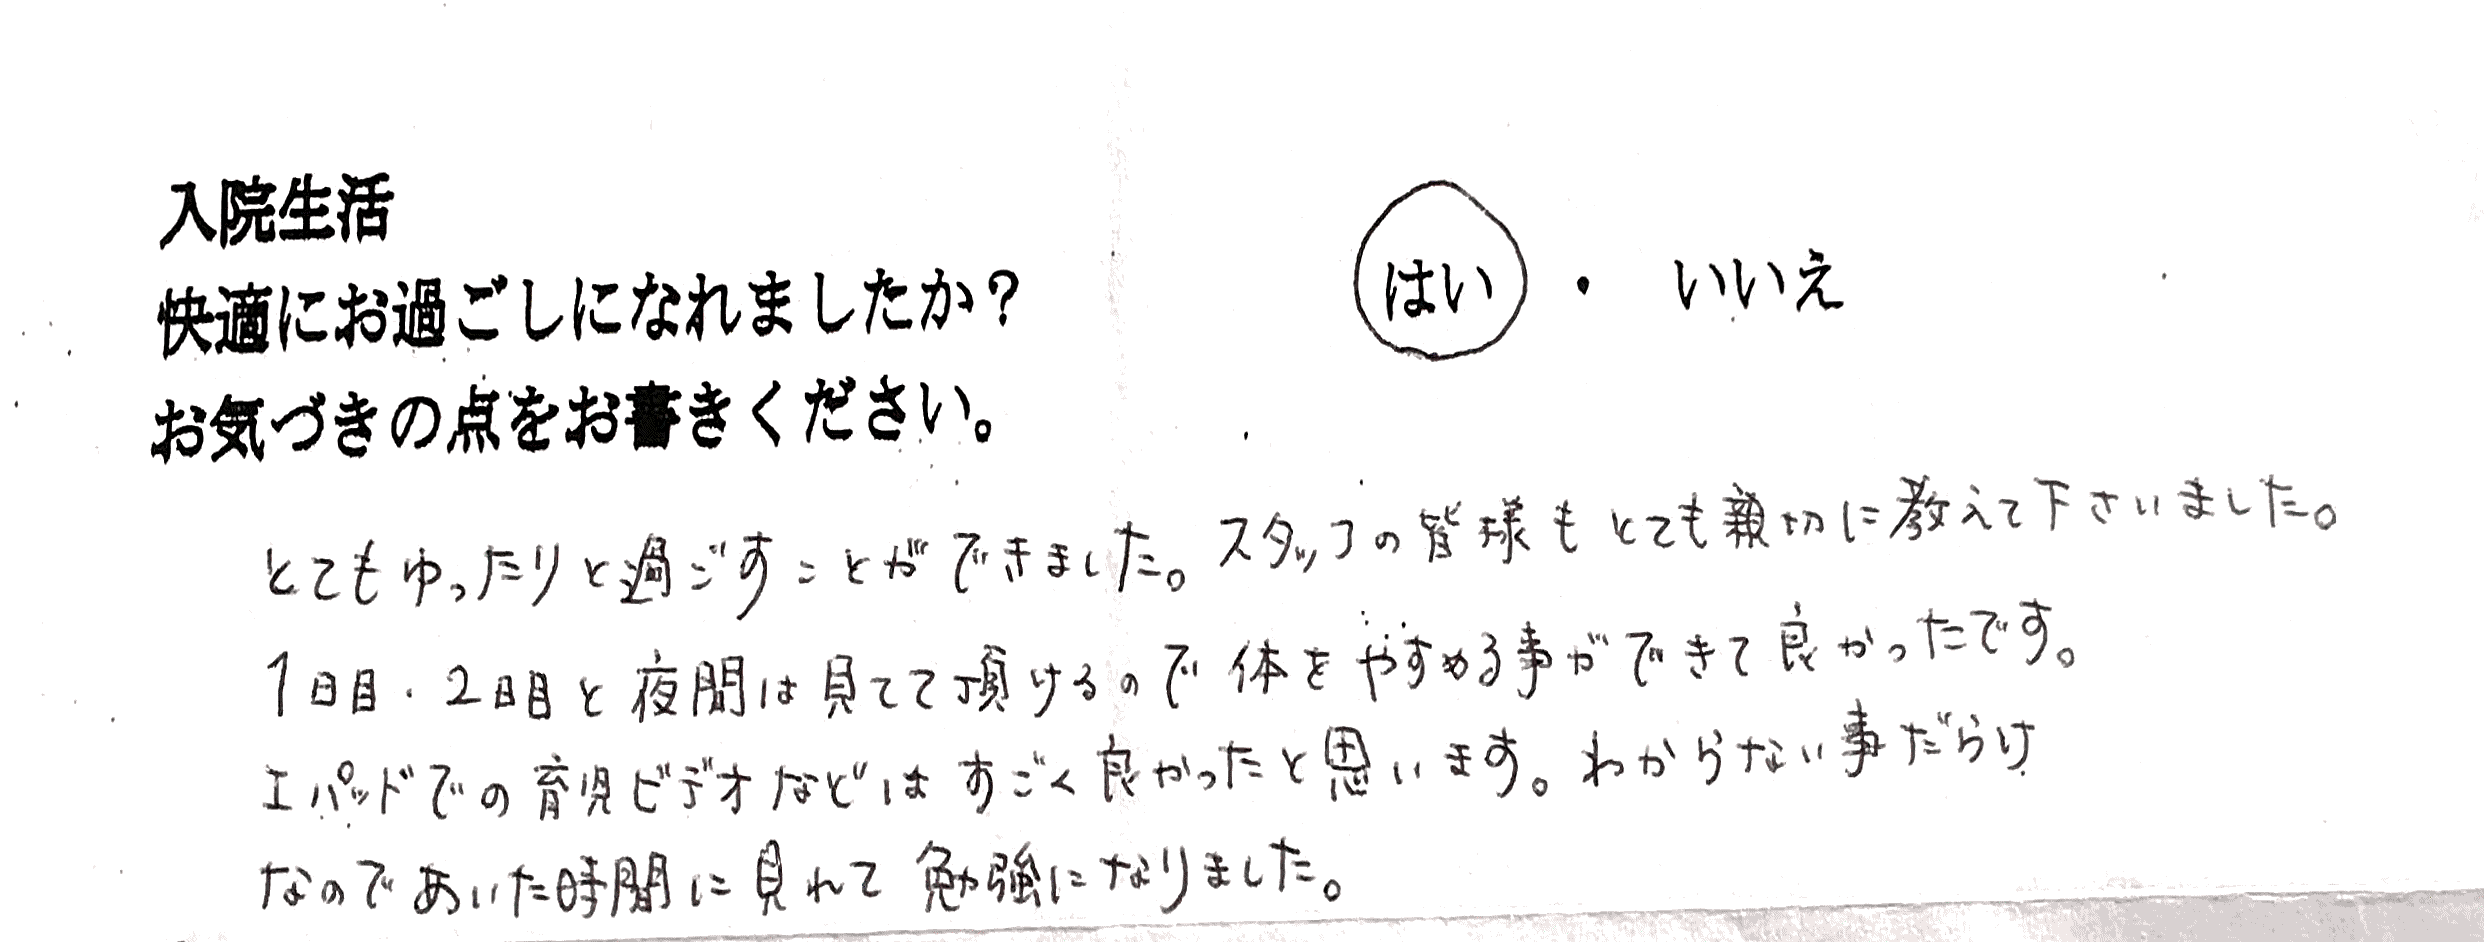 入院生活
快適にお過ごしになれましたか?
はい ・ いいえ
お気づきの点をお書きください。
とてもゆったりと過ごすことができました。スタッフの皆様もとても親切に教えて下さいました。
1日目・2日目と夜間は見てて頂けるので体をやすめる事ができて良かったです。
エパッドでの育児ビデオなどはすごく良かったと思います。わからない事だらけ
なのであいた時間に見れて勉強になりました。